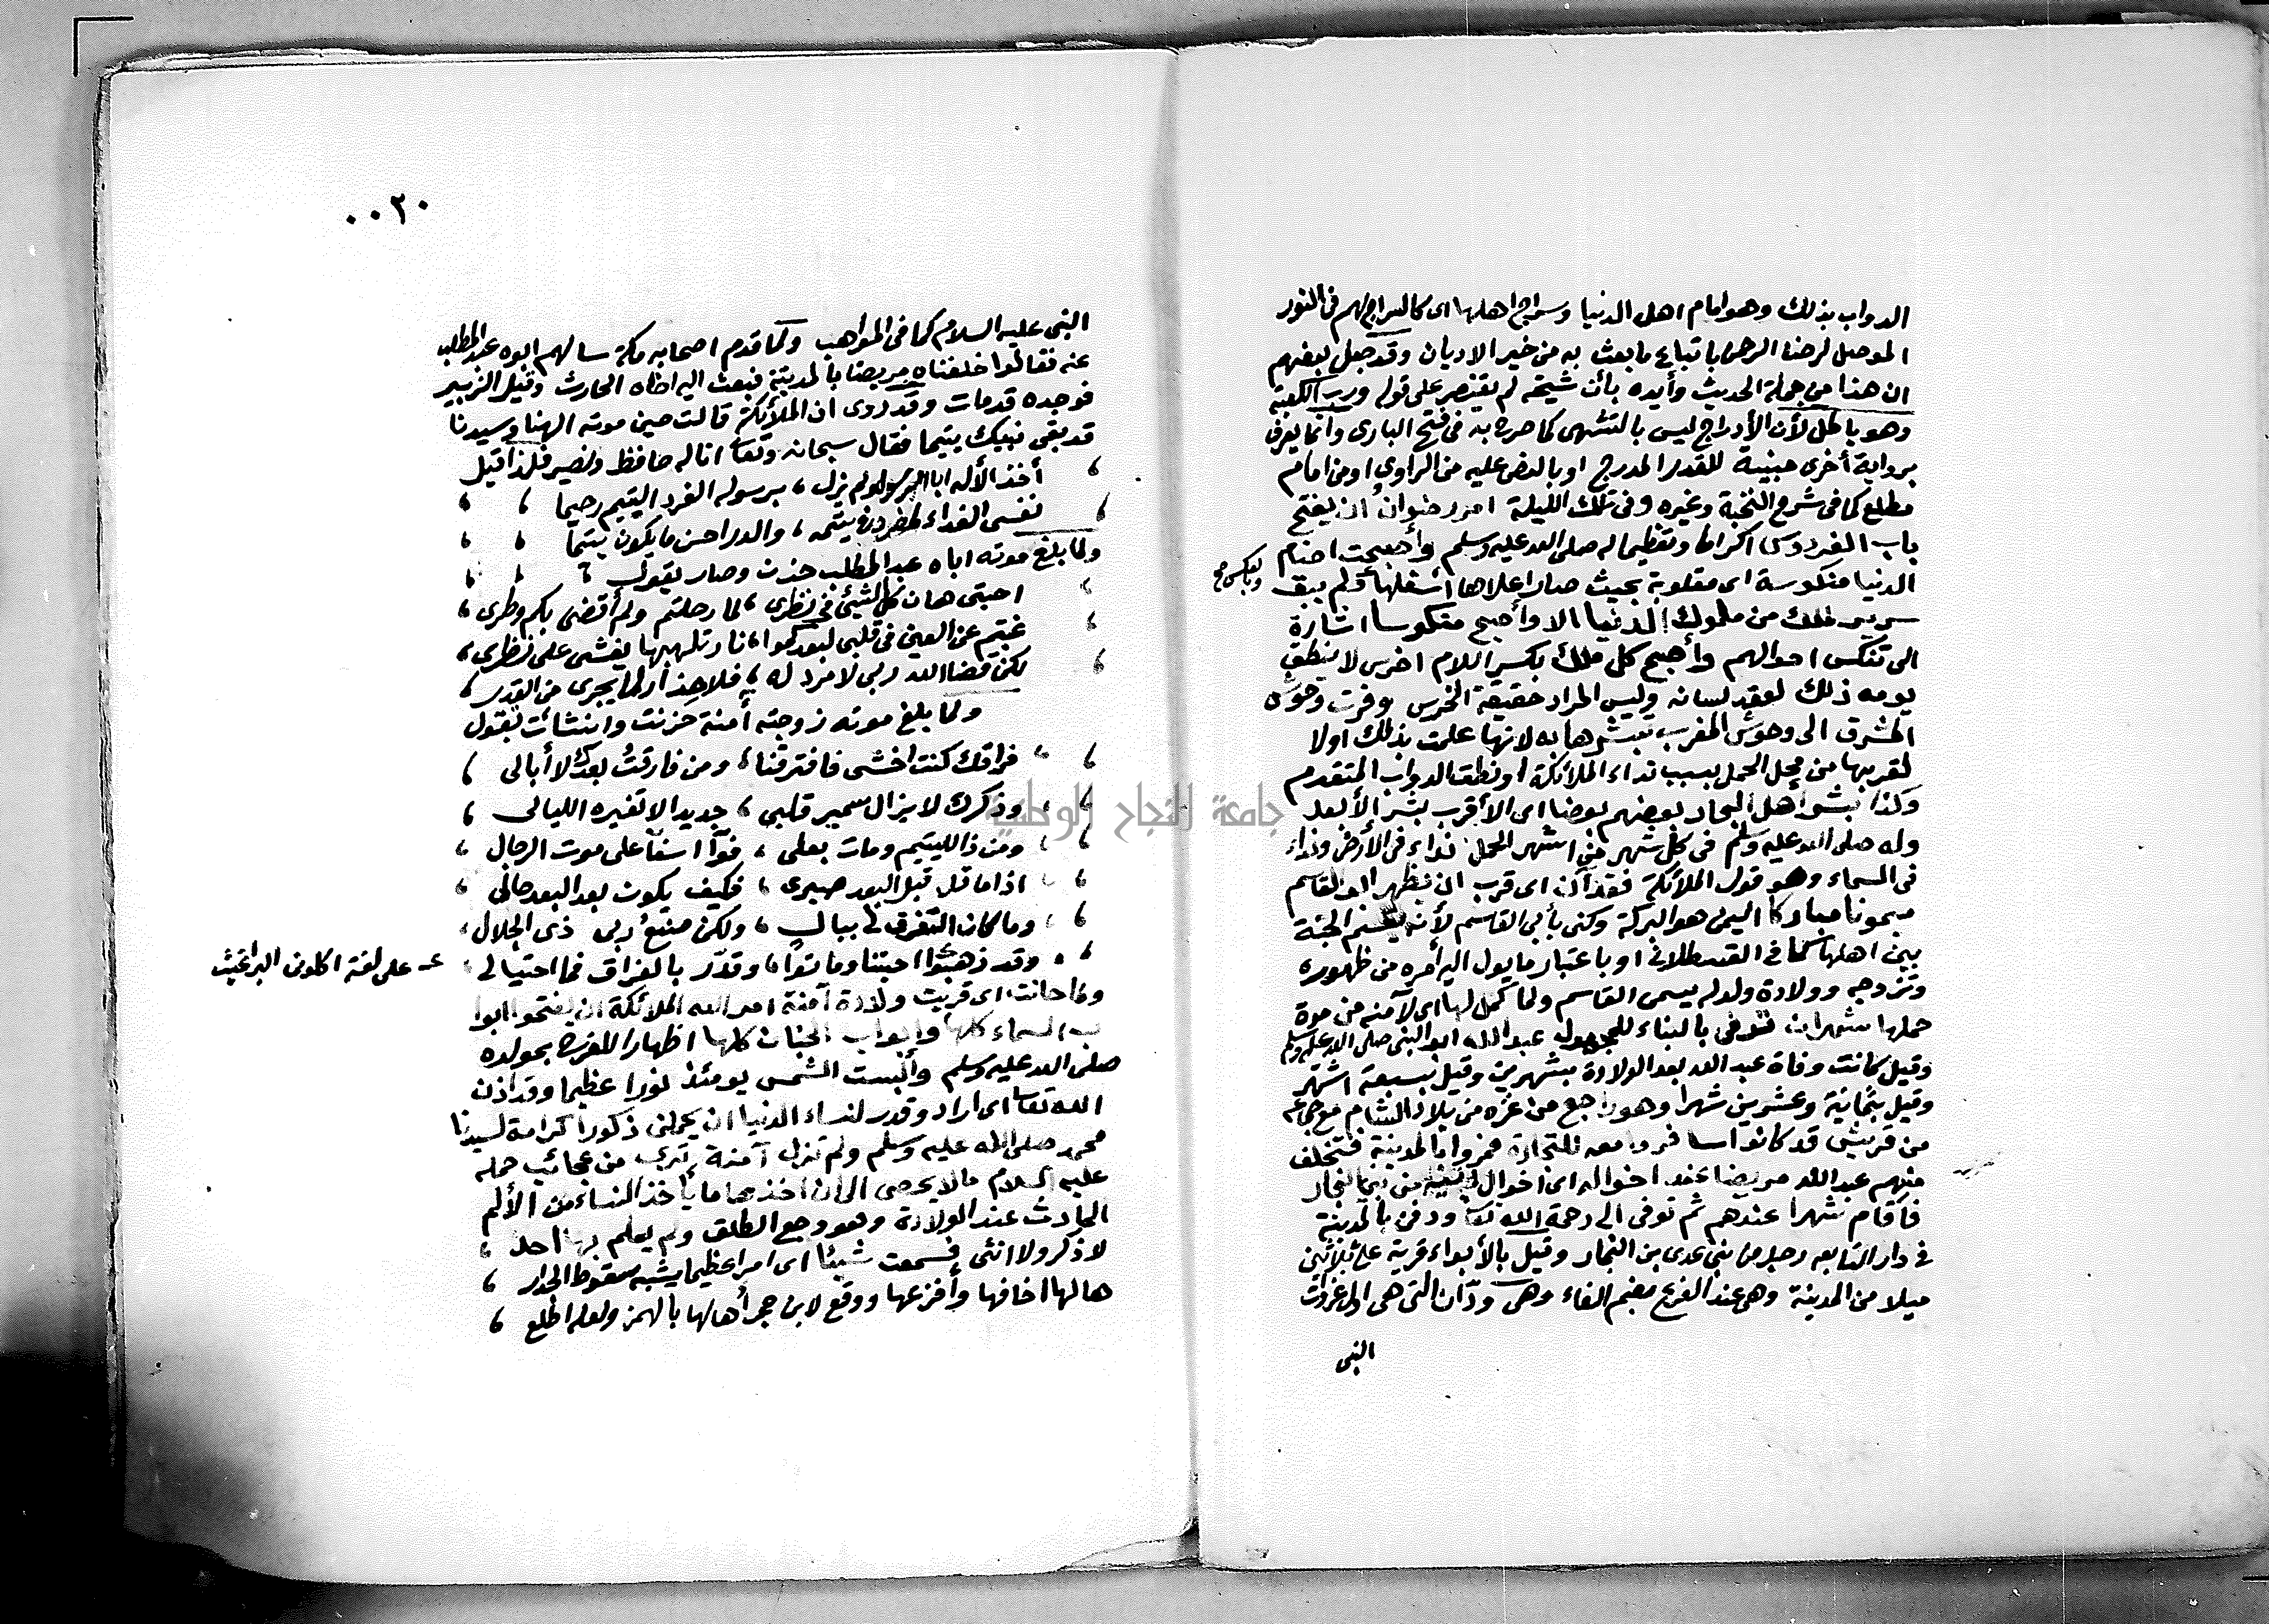 الدواب بذلك وهو امام اهل الدنيا وسراج اهلها اى كالسراج لهم فى النور
الموصل لرضا الرحمن باتباع ما بعث به من خير الاديان وقد جعل بعضهم
ان هذا من جملة الحديث وأيده بأن شيخه لم يقتصر على قوله ورب الكعبة
وهو باطل لأن الأدراج ليس بالتشهى كما صرح به فى فتح البارى وانما يعرف
برواية أخرى مبينة للقدر المدرج او بالنص عليه من الراوى او من امام
مطلع كما فى شرح النخبة وغيره وفى تلك الليلة امر رضوان أن يفتح
باب الفردوس اكراما وتعظيما له صلى الله عليه وسلم وأصبحت اصنام
الدنيا منكوسة اى مقلوبة بحيث صار اعلاها أسفلها ولم يبق
وبالعكس صح
سرير لملك من ملوك الدنيا الا وأصبح منكوسا اشارة
الى تنكس احوالهم وأصبح كل ملك بكسر اللام اخرس لا ينطق
يومه ذلك لعقد لسانه وليس المراد حقيقة الخرس وفرت وحوش
المشرق الى وحوش المغرب تبشرها به لانها علمت بذلك اولا
لقربها من محل الحمل بسبب نداء الملائكة او نطق الدواب المتقدم
وكذا بشر أهل البحار بعضهم بعضا اى الأقرب بشر الأبعد
وله صلى الله عليه وسلم فى كل شهر من اشهر الحمل نداء فى الأرض ونداء
فى السماء وهو قول الملائكة فقد آن اى قرب ان يظهر ابو القاسم
ميمونا مباركا اليمن هو البركة وكنى بأبى القاسم لأنه يقسم الجنة
بين اهلها كما فى القسطلانى او باعتبار ما يول اليه أمره من ظهوره
وتزوجه وولادة ولد له يسمى القاسم ولما كمل لها اى لآمنه من مدة
حملها شهران توفى بالبناء للمجهول عبد الله ابو النبى صلى الله عليه وسلم
وقيل كانت وفاة عبد الله بعد الولادة بشهرين وقيل بسبعة اشهر
وقيل بثمانية وعشرين شهرا وهو راجع من غزه من بلاد الشام مع جماعة
من قريش قد كانوا سافروا معه للتجارة فمروا بالمدينة فتخلف
منهم عبد الله مريضا عند اخواله اى اخوال ابيه من بنى النجار
فاقام شهرا عندهم ثم توفى الى رحمة الله تعا ودفن بالمدينة
فى دار التابعه رجل من بنى عدى بن النجار وقيل بالأبواء قرية على ثلاثين
ميلا من المدينة وهى عند الفرع بضم الفاء وهى ودّان التى هى اول غزوات
النبى
٠٠٢٠
النبى عليه السلام كما فى المواهب ولما قدم اصحابه مكة سالهم ابوه عبد المطلب
عنه فقالوا خلفناه مريضا بالمدينة فبعث اليه اخاه الحارث وقيل الزبير
فوجده قد مات وقد روى ان الملائكة قالت حين موته الهنا وسيدنا
قد بقى نبيك يتيما فقال سبحانه وتعا انا له حافظ ونصير فلذا قيل
أخذ الأله ابا الرسول ولم يزل ، برسوله الفرد اليتيم رحيما
نفسى الفداء لمفرد فى يتمه ، والدر احسن ما يكون يتيما
ولما بلغ موته اباه عبد المطلب حزن وصار يقول
احبتى هان كل الشيئ فى نظرى ، لما رحلتم ولم أقضى بكم وطرى ،
غبتم عن العين فى قلبى لبعدكموا ، نار تلهبها يغشى على نظرى ،
لكن قضا الله ربى لا مرد له ، فلا حذار لما يجرى من القدر ،
ولما بلغ موته زوجته أمنة حزنت وانشأت تقول
فراقك كنت اخشى فافترقنا ، ومن فارقتُ بعدك لا أبالى ،
وذكرك لا يزال سمير قلبى ، جديد الا تغيره الليالى ،
ومن ذا لليتيم ومات بعلى ، فوآ اسفا على موت الرجال ،
اذا ما قل قبل البعد صبرى ، فكيف يكون بعد البعد حالى ،
وما كان التفرق لى ببالٍ ، ولكن صنعُ ربى ذى الجلال ،
وقد ذهبوا احبتنا وماتوا ، وقدّر بالفراق فما احتيالى ،
على لغة اكلونى البراغيث
ولما حانت اى قربت ولادة آمنة امر الله الملائكة ان يفتحوا ابوا
ب السماء كلها وابواب الجنات كلها اظهارا للفرح بمولده
صلى الله عليه وسلم وألبست الشمس يومئذ نورا عظيما وقد اذن
الله تعا اى اراد وقدر لنساء الدنيا ان يحملن ذكورا كرامة لسيدنا
محمد صلى الله عليه وسلم ولم تزل آمنة ترى من عجائب حمله
عليه السلام مالا يحصى الى ان اخذها ما يأخذ النساء من الألم
الحادث عند الولادة وهو وجع الطلق ولم يعلم بها احد ،
لا ذكر ولا انثى فسمعت شيئا اى امرا عظيما يشبه سقوط الجدار ،
هالها اخافها وأفزعها ووقع لابن حجر أهالها بالهمز ولعله اطلع ،
جامعة النجاح الوطنية